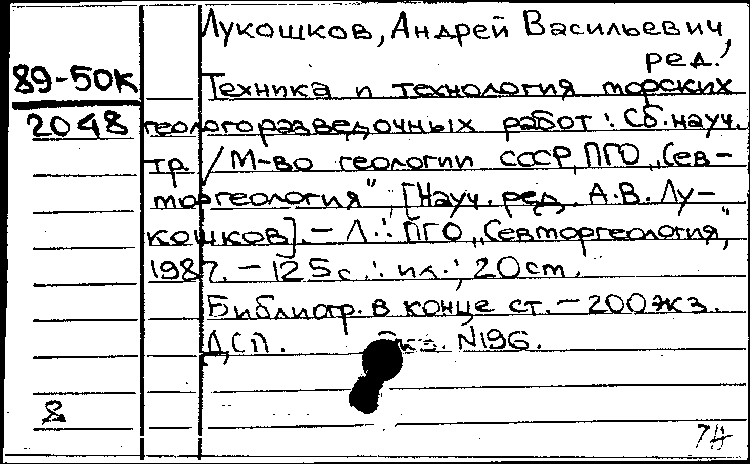 Лукошков, Андрей Васильевич,
ред.
89-50к
2048
Техника и технология морских
геологоразведочных работ : Сб. науч.
тр. / М-во геологии СССР, ПГО „Сев-
моргеология", [Науч. ред. А.В. Лу-
кошков]. - Л. : ПГО „Севморгеология",
1987. - 125 с. : ил. ; 20 см.
Библиогр. в конце ст. - 200 экз.
ДСП. Экз. N196.
8